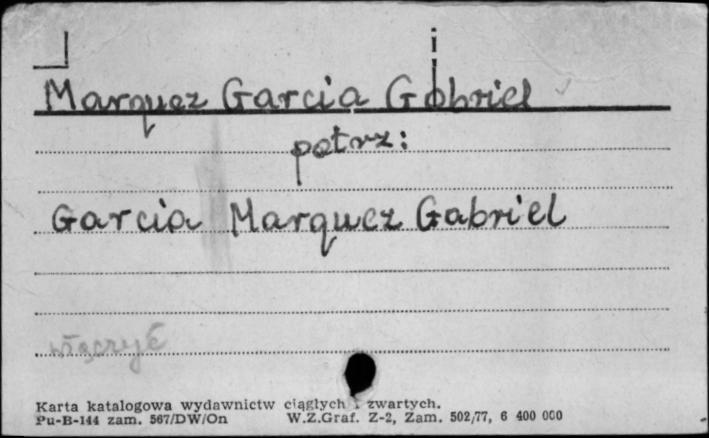 Marquez Garcia Gabriel
patrz:
Garcia Marquez Gabriel
włączyć
Karta katalogowa wydawnictw ciągłych i zwartych.
Pu-B-144 zam. 567/DW/On W.Z.Graf. Z-2, Zam. 502/77, 6 400 000